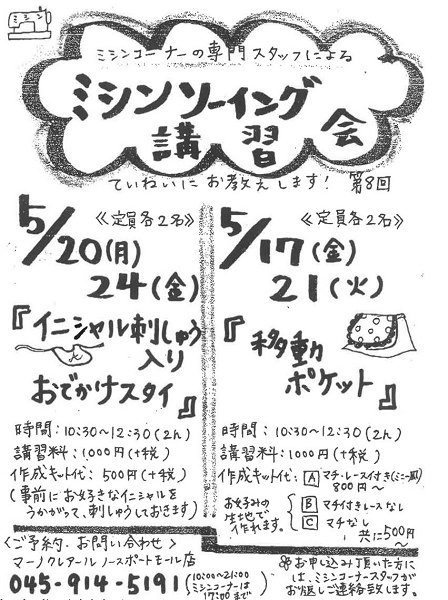 ミシン
ミシンコーナーの専門スタッフによる
ミシンソーイング
講習会
ていねいにお教えします! 第8回
5/20(月) 《定員各2名》
24(金)
『イニシャル刺しゅう
入り
おでかけスタイ』
時間:10:30~12:30(2h)
講習料:1,000円(+税)
作成キット代:500円(+税)
(事前にお好きなイニシャルを
うかがって、刺しゅうしておきます)
5/17(金) 《定員各2名》
21(火)
『移動
ポケット』
時間:10:30~12:30(2h)
講習料:1,000円(+税)
作成キット代:A マチ・レース付き
800円~
お好みの
生地で
作れます。
B マチ付きレースなし
C マチなし
共に500円~
<ご予約、お問い合わせ>
マーノクレアール ノースポートモール店
045-914-5191
(10:00~21:00
ミシンコーナーは
17:00まで)
お申し込み頂いた方に
は、ミシンコーナースタッフが
お返しご連絡致します。